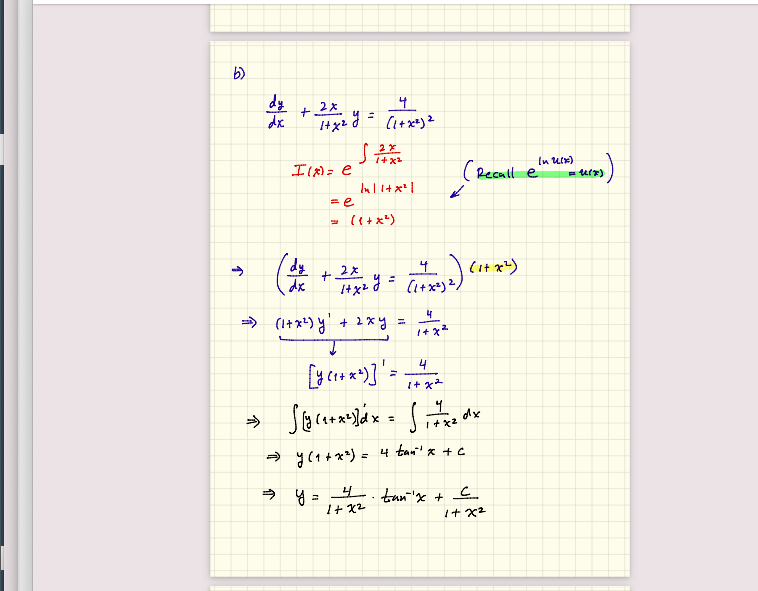 b)
dy/dx + 2x/(1+x²) y = 4/(1+x²)²
I(x) = e^(∫ 2x/(1+x²))
(Recall e^(ln u(x)) = u(x))
= e^(ln|1+x²|)
= (1+x²)
⇒ (dy/dx + 2x/(1+x²) y = 4/(1+x²)²) (1+x²)
⇒ (1+x²) y' + 2xy = 4/(1+x²)
↓
[y(1+x²)]' = 4/(1+x²)
⇒ ∫[y(1+x²)]'dx = ∫ 4/(1+x²) dx
⇒ y(1+x²) = 4 tan⁻¹x + c
⇒ y = 4/(1+x²) · tan⁻¹x + c/(1+x²)